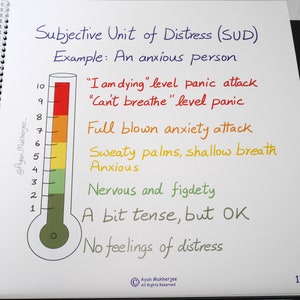 Subjective Unit of Distress (SUD)
Example: An anxious person
10
9
8
7
6
5
4
3
2
1
0
"I am dying" level panic attack
"Can't breathe" level panic
Full blown anxiety attack
Sweaty palms, shallow breath
Anxious
Nervous and figdety
A bit tense, but OK
No feelings of distress
@Ayan_Mukherjee_
© Ayan Mukherjee
All Rights Reserved
1